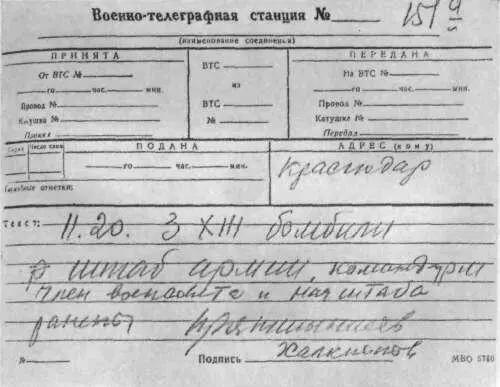 Военно-телеграфная станция №
(наименование соединенья)
ПРИНЯТА
От ВТС №
го час. мин.
Провод №
Катушка №
Принял
ВТС
из
ВТС
№
ПЕРЕДАНА
На ВТС №
го час. мин.
Провод №
Катушка №
Передал
Серия Число слов
ПОДАНА
го час. мин.
Служебные отметки:
АДРЕС (кому)
Краснодар
Текст: 11.20. 3 XIII бомбили
штаб армии, командарм
член военсовета и наштаба
ранены
№ Подпись МВО 5760